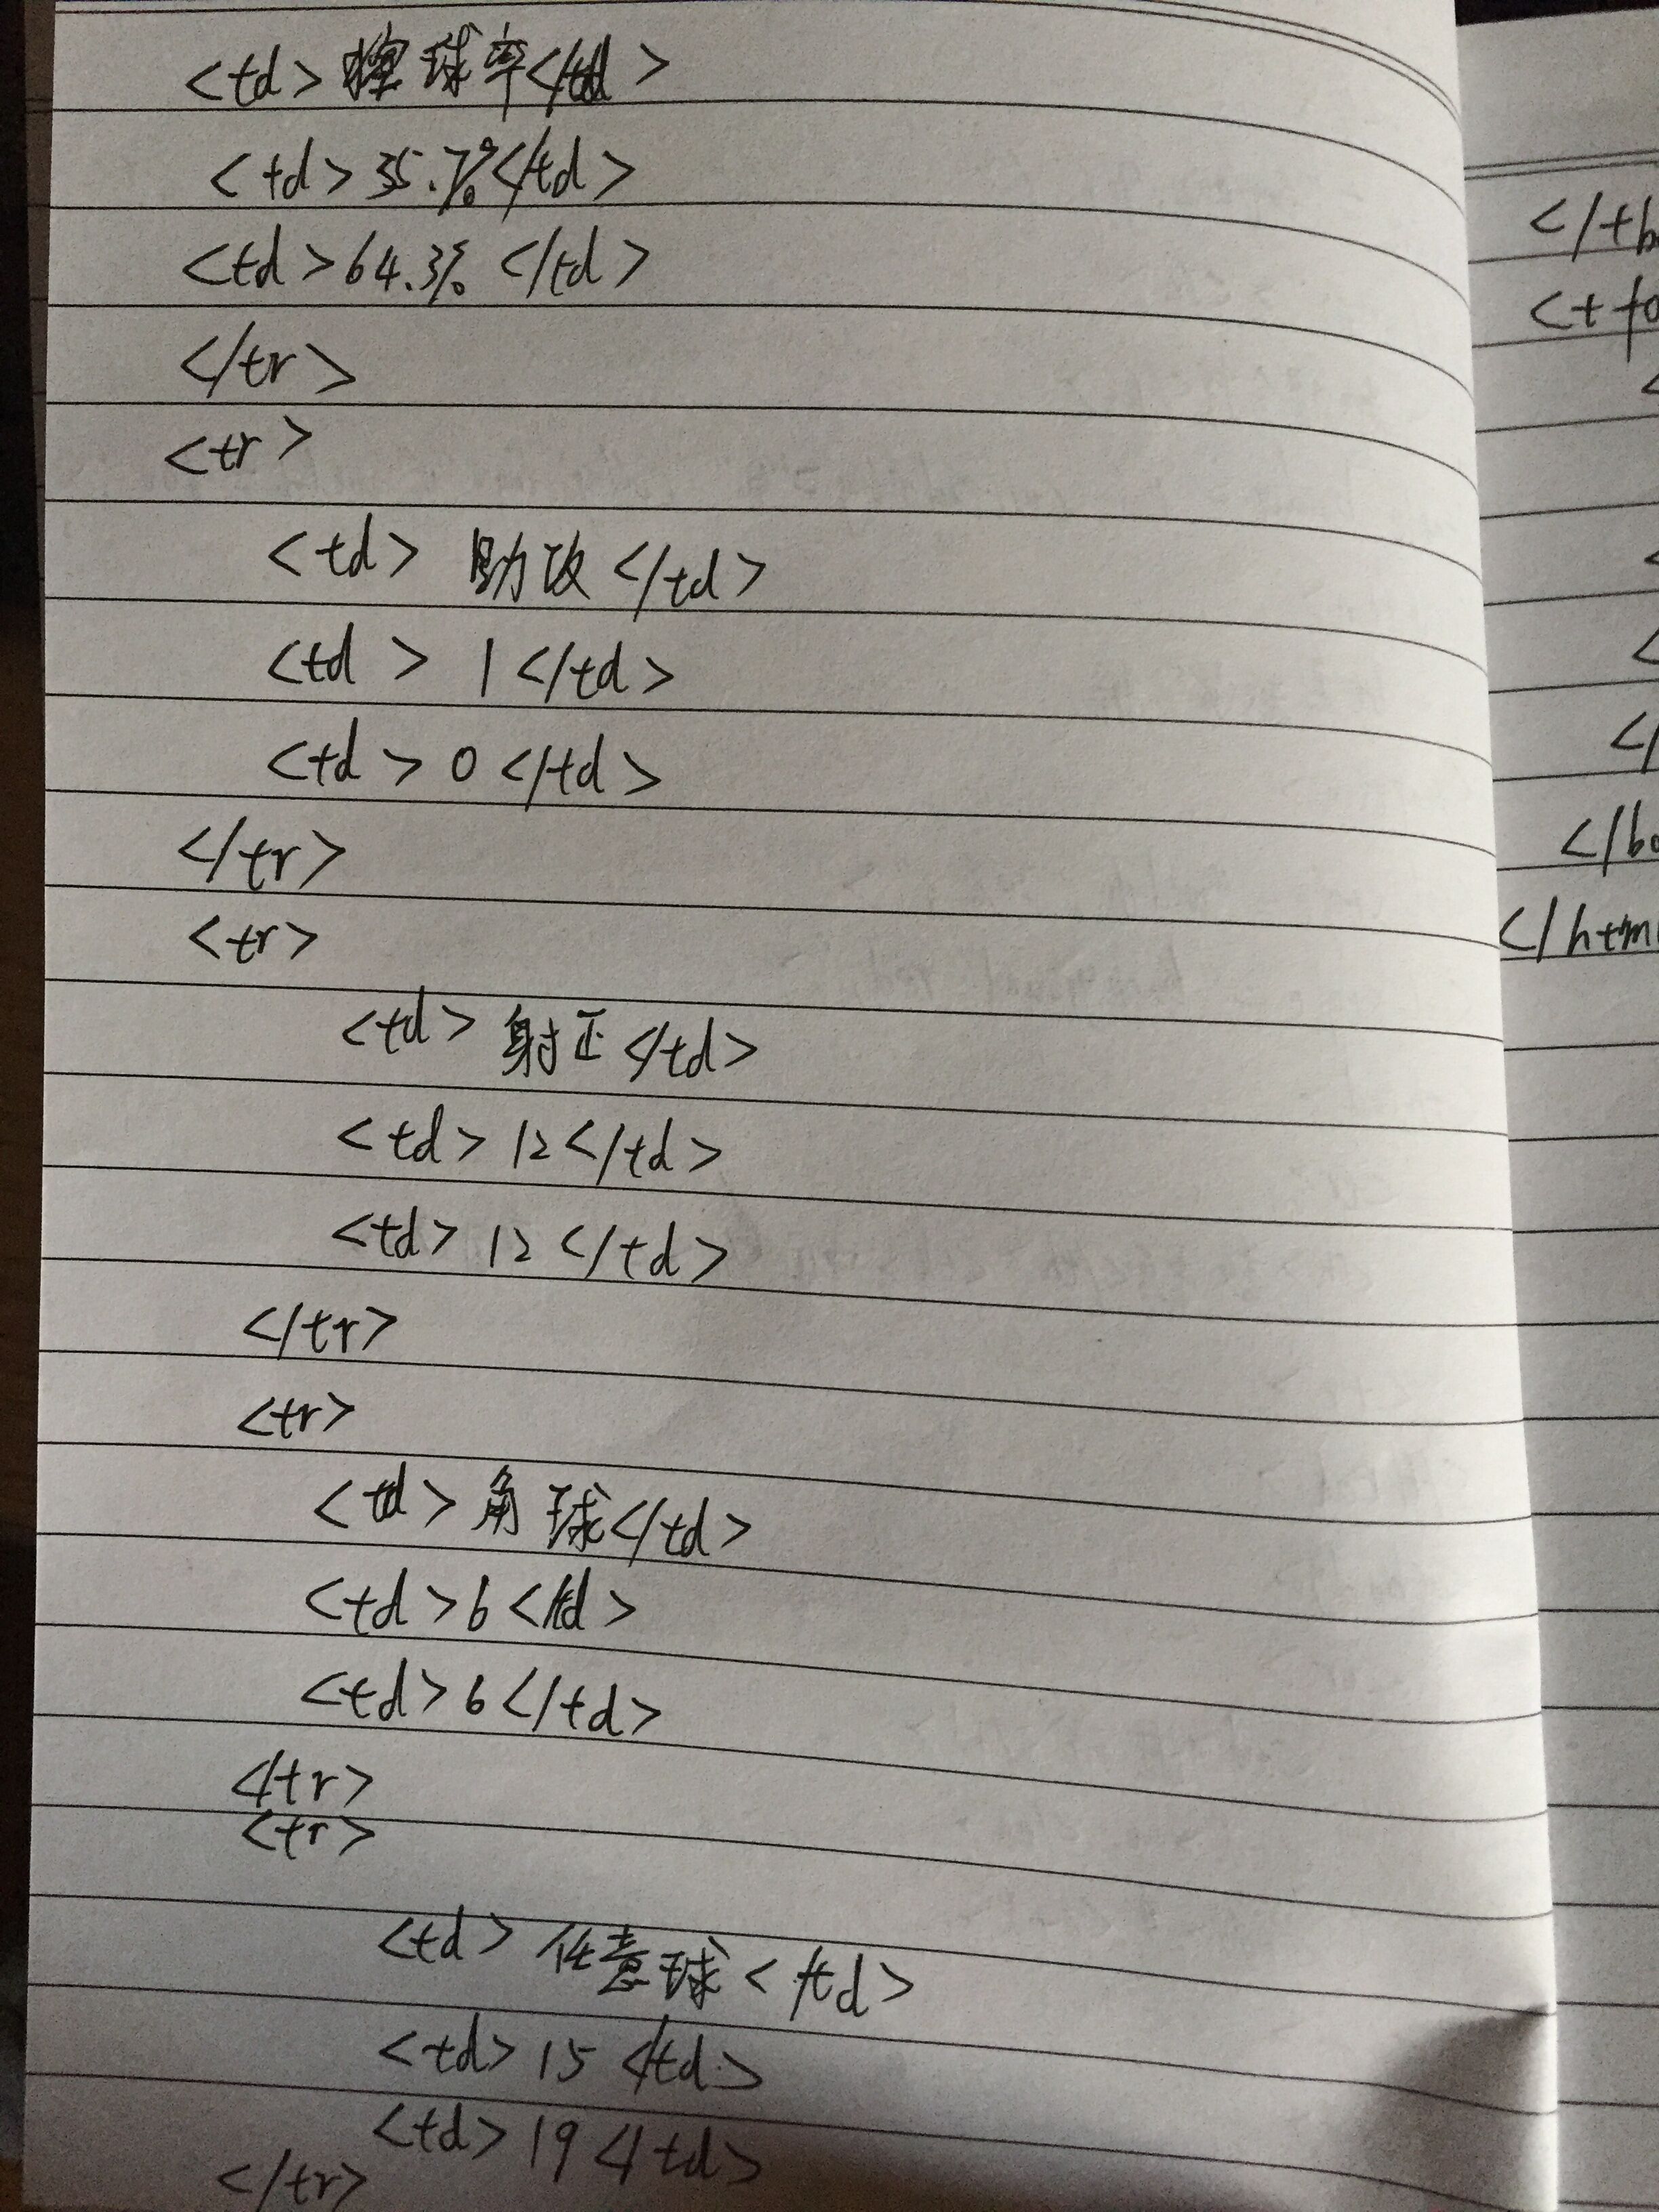 <td>控球率</td>
<td>35.7%</td>
<td>64.3%</td>
</tr>
<tr>
<td>助攻</td>
<td>1</td>
<td>0</td>
</tr>
<tr>
<td>射正</td>
<td>12</td>
<td>12</td>
</tr>
<tr>
<td>角球</td>
<td>6</td>
<td>6</td>
</tr>
<tr>
<td>任意球</td>
<td>15</td>
<td>19</td>
</tr>
</tb
<tfo
<
<
<
</
</bo
</html